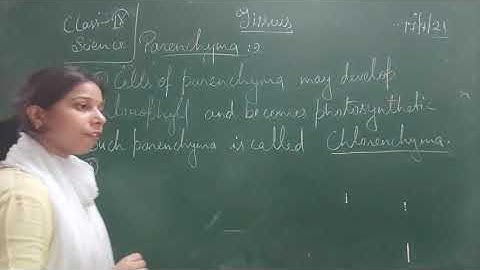 Class-IX
Tissues
Science
Parenchyma :→
① Cells of parenchyma may develop
chlorophyll and becomes photosynthetic
such parenchyma is called Chlorenchyma.